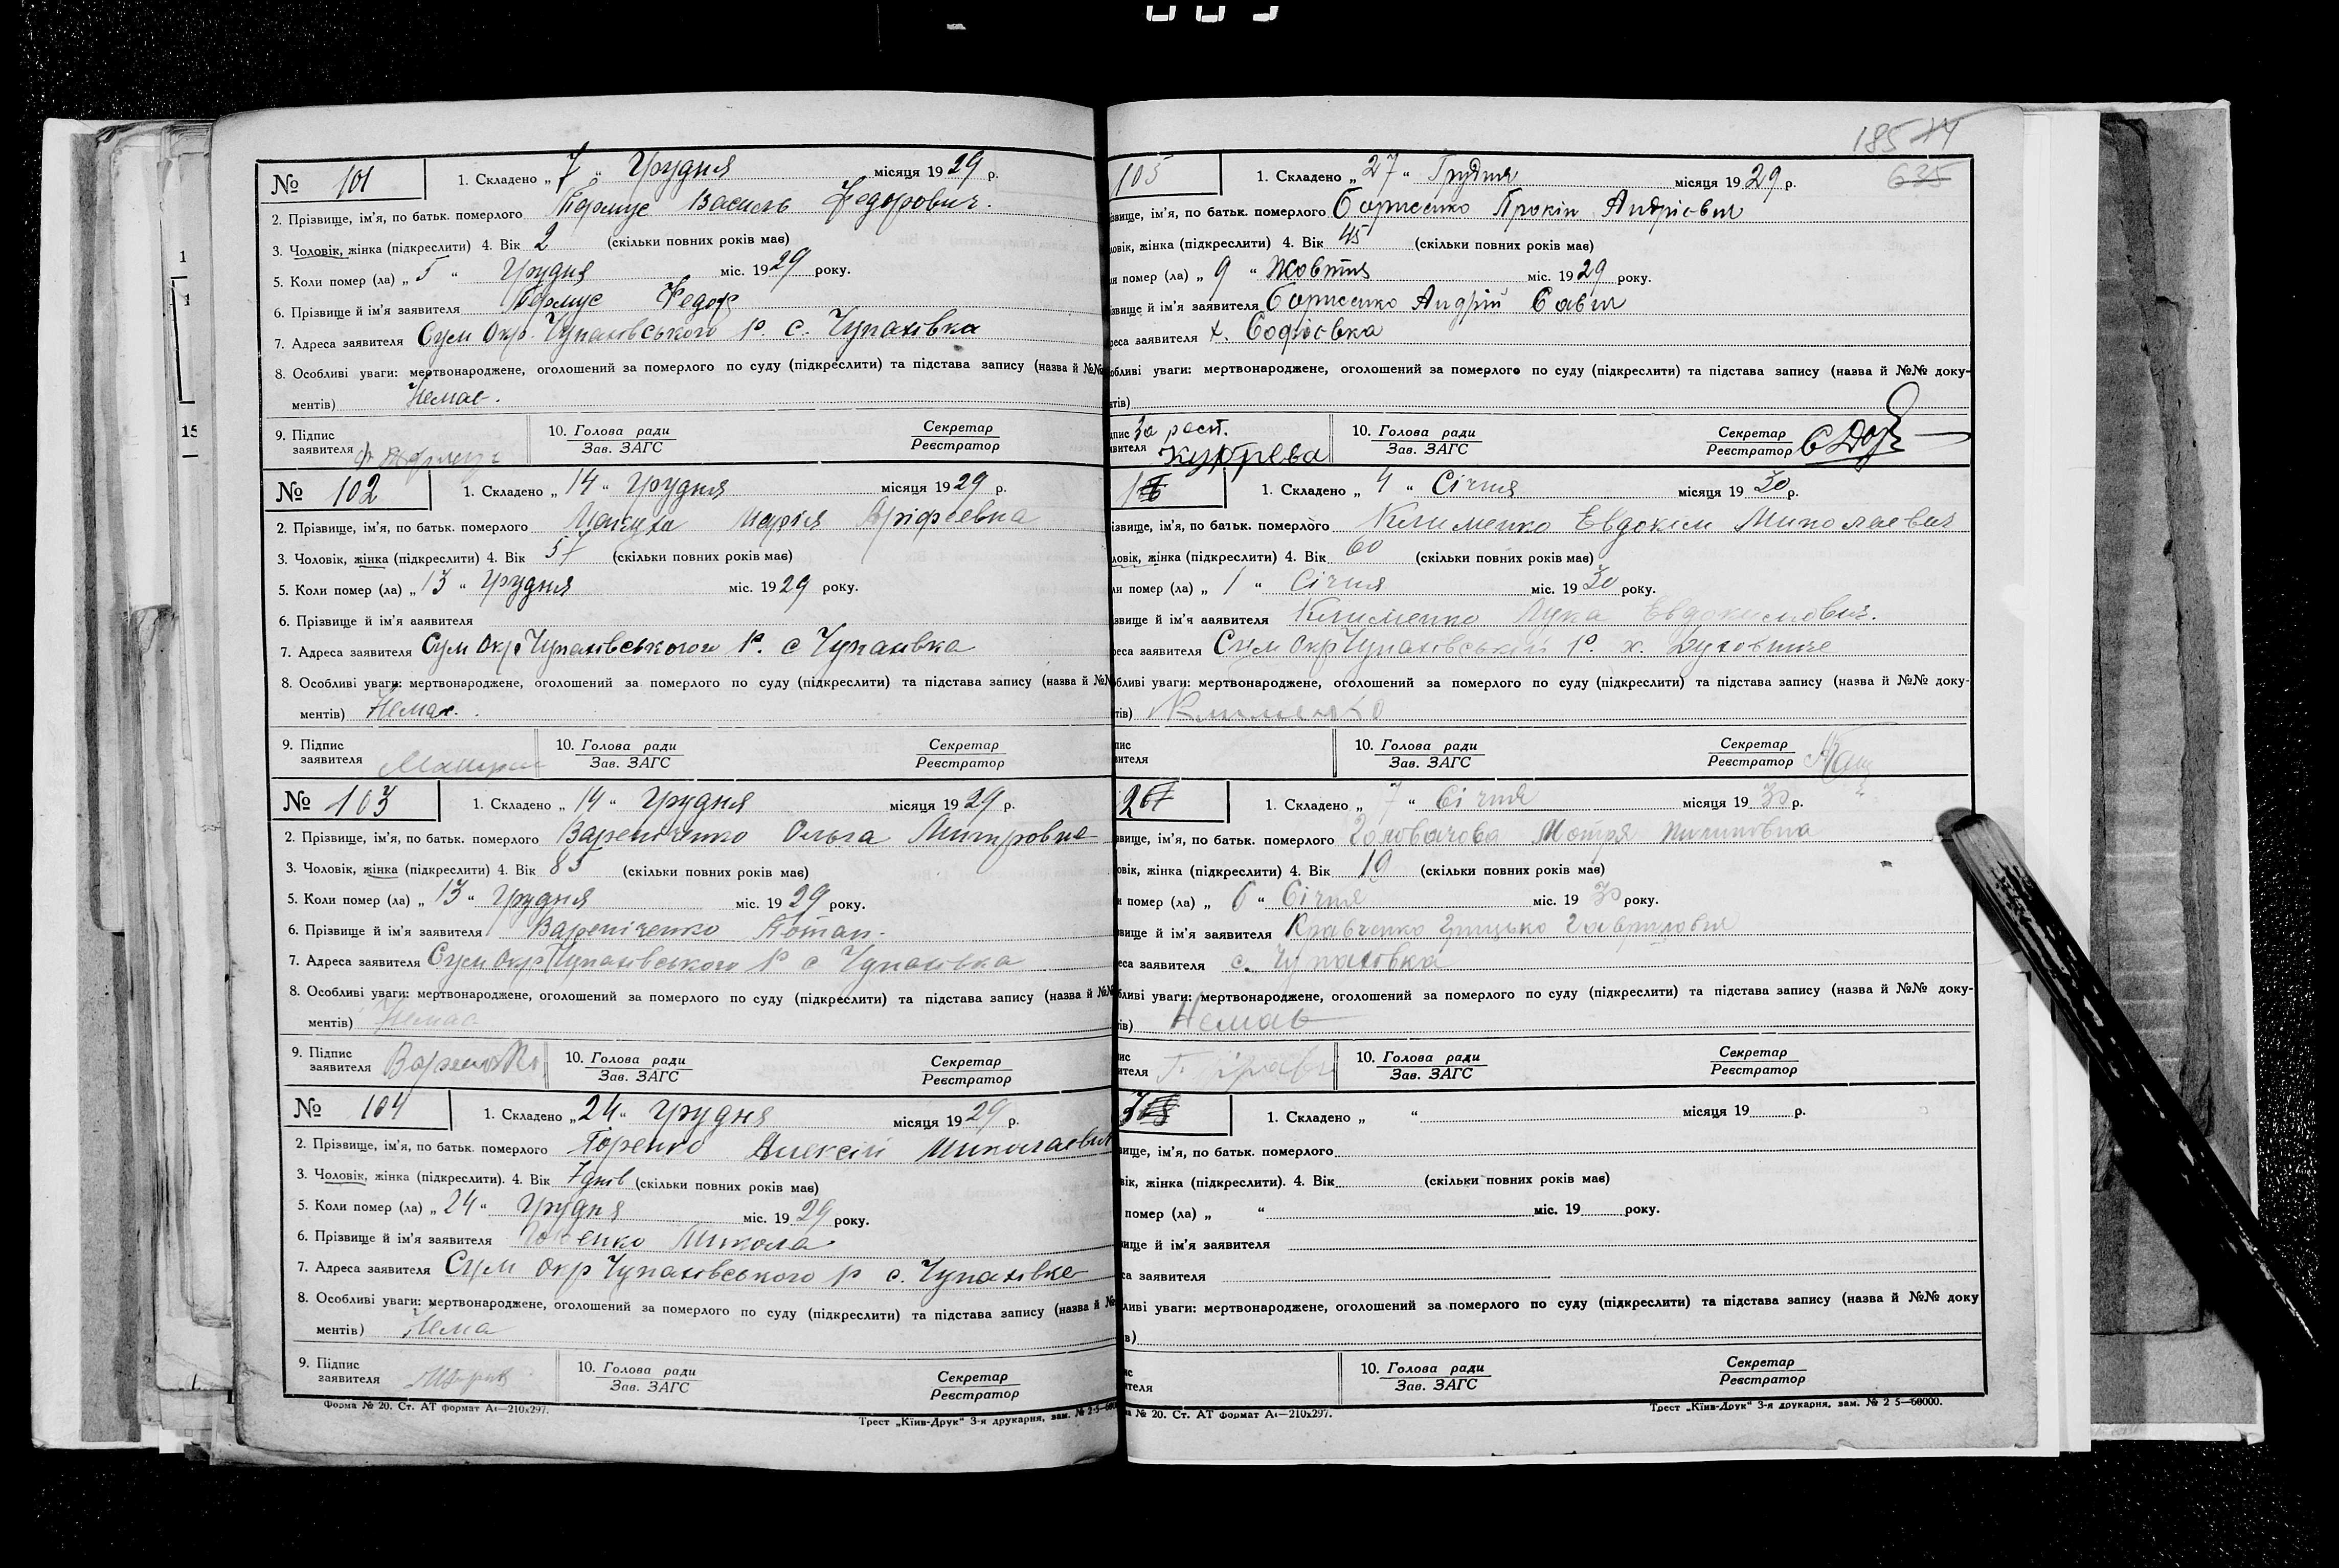 185
635
№ 101
1. Складено „ 7 “ Грудня місяця 19 29 р.
2. Прізвище, ім'я, по батьк. померлого Василь Федорович.
3. Чоловік, жінка (підкреслити) 4. Вік 2 (скільки повних років має)
5. Коли помер (ла) „ 5 “ Грудня міс. 19 29 року.
6. Прізвище й ім'я заявителя Федор
7. Адреса заявителя Сум Окр. Чупахівського р. с. Чупахівка
8. Особливі уваги: мертвонароджене, оголошений за померлого по суду (підкреслити) та підстава запису (назва й №№
ментів) Немає.
9. Підпис заявителя
10. Голова ради Зав. ЗАГС
Секретар Реєстратор
№ 102
1. Складено „ 14 “ Грудня місяця 19 29 р.
2. Прізвище, ім'я, по батьк. померлого Марія
3. Чоловік, жінка (підкреслити) 4. Вік 57 (скільки повних років має)
5. Коли помер (ла) „ 13 “ Грудня міс. 19 29 року.
6. Прізвище й ім'я заявителя
7. Адреса заявителя Сум Окр Чупахівського р. с Чупахівка
8. Особливі уваги: мертвонароджене, оголошений за померлого по суду (підкреслити) та підстава запису (назва й №№
ментів) Немає.
9. Підпис заявителя
10. Голова ради Зав. ЗАГС
Секретар Реєстратор
№ 103
1. Складено „ 14 “ Грудня місяця 19 29 р.
2. Прізвище, ім'я, по батьк. померлого Вареніченко Ольга Митровна
3. Чоловік, жінка (підкреслити) 4. Вік 85 (скільки повних років має)
5. Коли помер (ла) „ 13 “ Грудня міс. 19 29 року.
6. Прізвище й ім'я заявителя Вареніченко Потап.
7. Адреса заявителя Сум Окр Чупахівського р с Чупахівка
8. Особливі уваги: мертвонароджене, оголошений за померлого по суду (підкреслити) та підстава запису (назва й №№
ментів) Немає
9. Підпис заявителя
10. Голова ради Зав. ЗАГС
Секретар Реєстратор
№ 104
1. Складено „ 24 “ Грудня місяця 19 29 р.
2. Прізвище, ім'я, по батьк. померлого Алексій Миколаевич
3. Чоловік, жінка (підкреслити). 4. Вік 7 днів (скільки повних років має)
5. Коли помер (ла) „ 24 “ Грудня міс. 19 29 року.
6. Прізвище й ім'я заявителя Микола
7. Адреса заявителя Сум Окр Чупахівського р с. Чупахівка
8. Особливі уваги: мертвонароджене, оголошений за померлого по суду (підкреслити) та підстава запису (назва й №
ментів) Нема
9. Підпис заявителя
10. Голова ради Зав. ЗАГС
Секретар Реєстратор
Форма № 20. Ст. АТ формат А4—210х297.
Трест „Київ-Друк“ 3-я друкарня, зам. № 2 5—600
105
1. Складено „ 27 “ Грудня місяця 19 29 р.
ізвище, ім'я, по батьк. померлого Борисенко Прокіп Андрієвич
ловік, жінка (підкреслити) 4. Вік 45 (скільки повних років має)
ли помер (ла) „ 9 “ Жовтня міс. 19 29 року.
звище й ім'я заявителя Борисенко Андрій Савич
реса заявителя х. Софієвка
обливі уваги: мертвонароджене, оголошений за померлого по суду (підкреслити) та підстава запису (назва й №№ доку-
нтів)
пис явителя За
10. Голова ради Зав. ЗАГС
Секретар Реєстратор
1
1. Складено „ 4 “ Січня місяця 19 30 р.
ізвище, ім'я, по батьк. померлого Клименко Евдокім Миколаевич
ловік, жінка (підкреслити) 4. Вік 60 (скільки повних років має)
ли помер (ла) „ 1 “ Січня міс. 19 30 року.
звище й ім'я заявителя Клименко Лука Евдокимович.
реса заявителя Сум Окр Чупахівській р. х.
бливі уваги: мертвонароджене, оголошений за померлого по суду (підкреслити) та підстава запису (назва й №№ доку-
тів) Клименко
пис вителя
10. Голова ради Зав. ЗАГС
Секретар Реєстратор
2
1. Складено „ 7 “ Січня місяця 19 30 р.
вище, ім'я, по батьк. померлого Головачова Мотря Пилиповна
овік, жінка (підкреслити) 4. Вік 10 (скільки повних років має)
и помер (ла) „ 6 “ Січня міс. 19 30 року.
вище й ім'я заявителя Кравченко Грицько Гаврилович
еса заявителя с. Чупахівка
бливі уваги: мертвонароджене, оголошений за померлого по суду (підкреслити) та підстава запису (назва й №№ доку-
ів) Немає
ис ителя
10. Голова ради Зав. ЗАГС
Секретар Реєстратор
3
1. Складено „ “ місяця 19 р.
вище, ім'я, по батьк. померлого
вік, жінка (підкреслити). 4. Вік (скільки повних років має)
помер (ла) „ “ міс. 19 року.
вище й ім'я заявителя
са заявителя
ливі уваги: мертвонароджене, оголошений за померлого по суду (підкреслити) та підстава запису (назва й №№ доку
в)
ис ителя
10. Голова ради Зав. ЗАГС
Секретар Реєстратор
а № 20. Ст. АТ формат А4—210х297.
Трест „Київ-Друк“ 3-я друкарня, зам. № 2 5—60000.